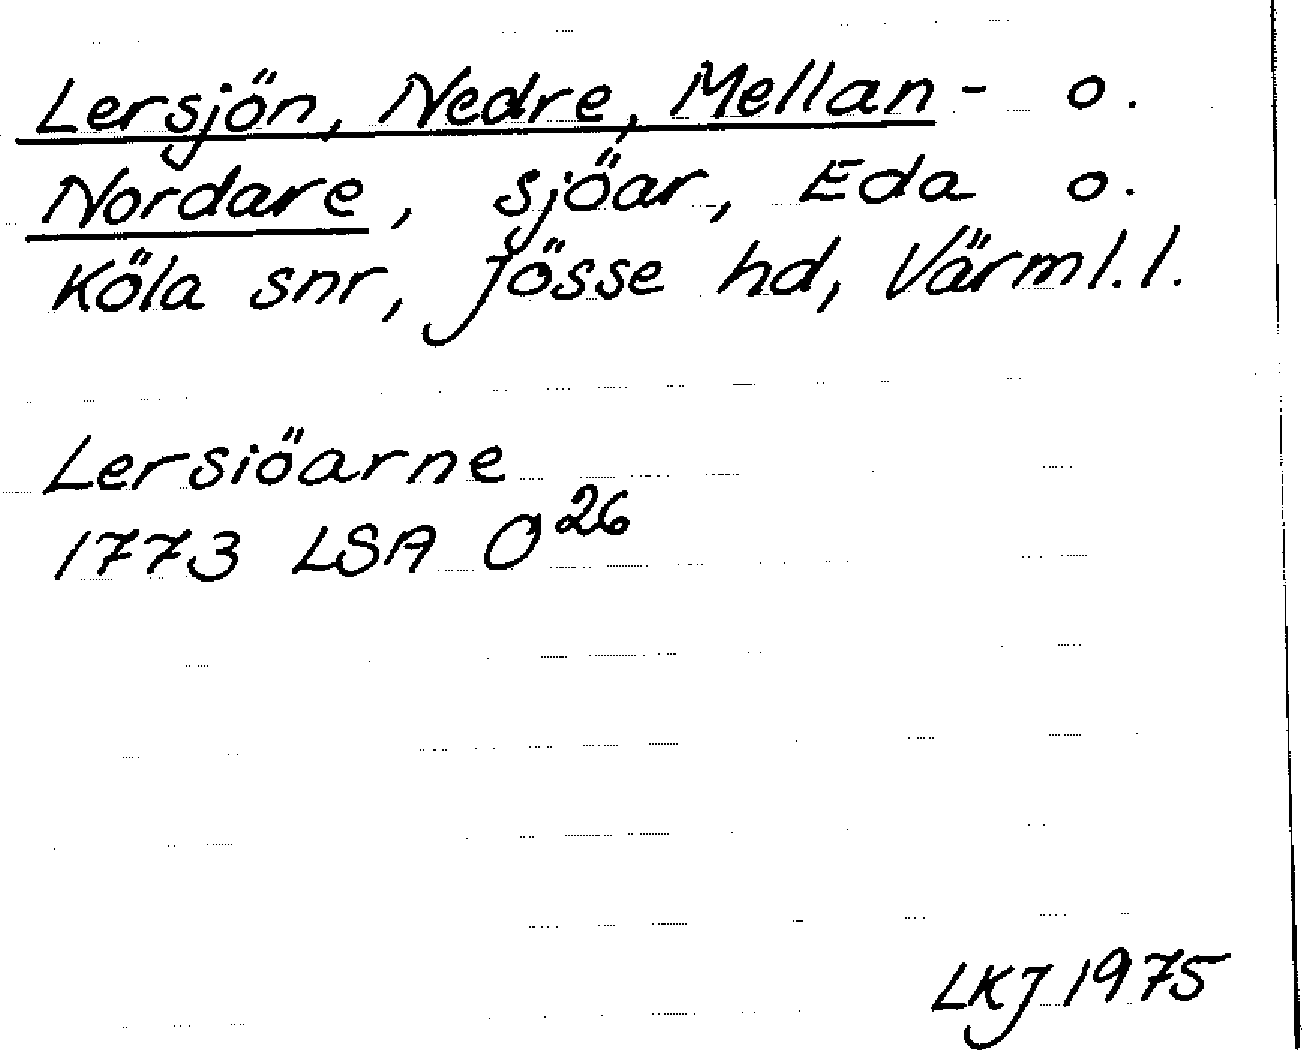 Lersjön, Nedre, Mellan- o.
Nordare, sjöar, Eda o.
Köla snr, Jösse hd, Värml.l.
Lersiöarne
1773 LSA O²⁶
LKJ 1975